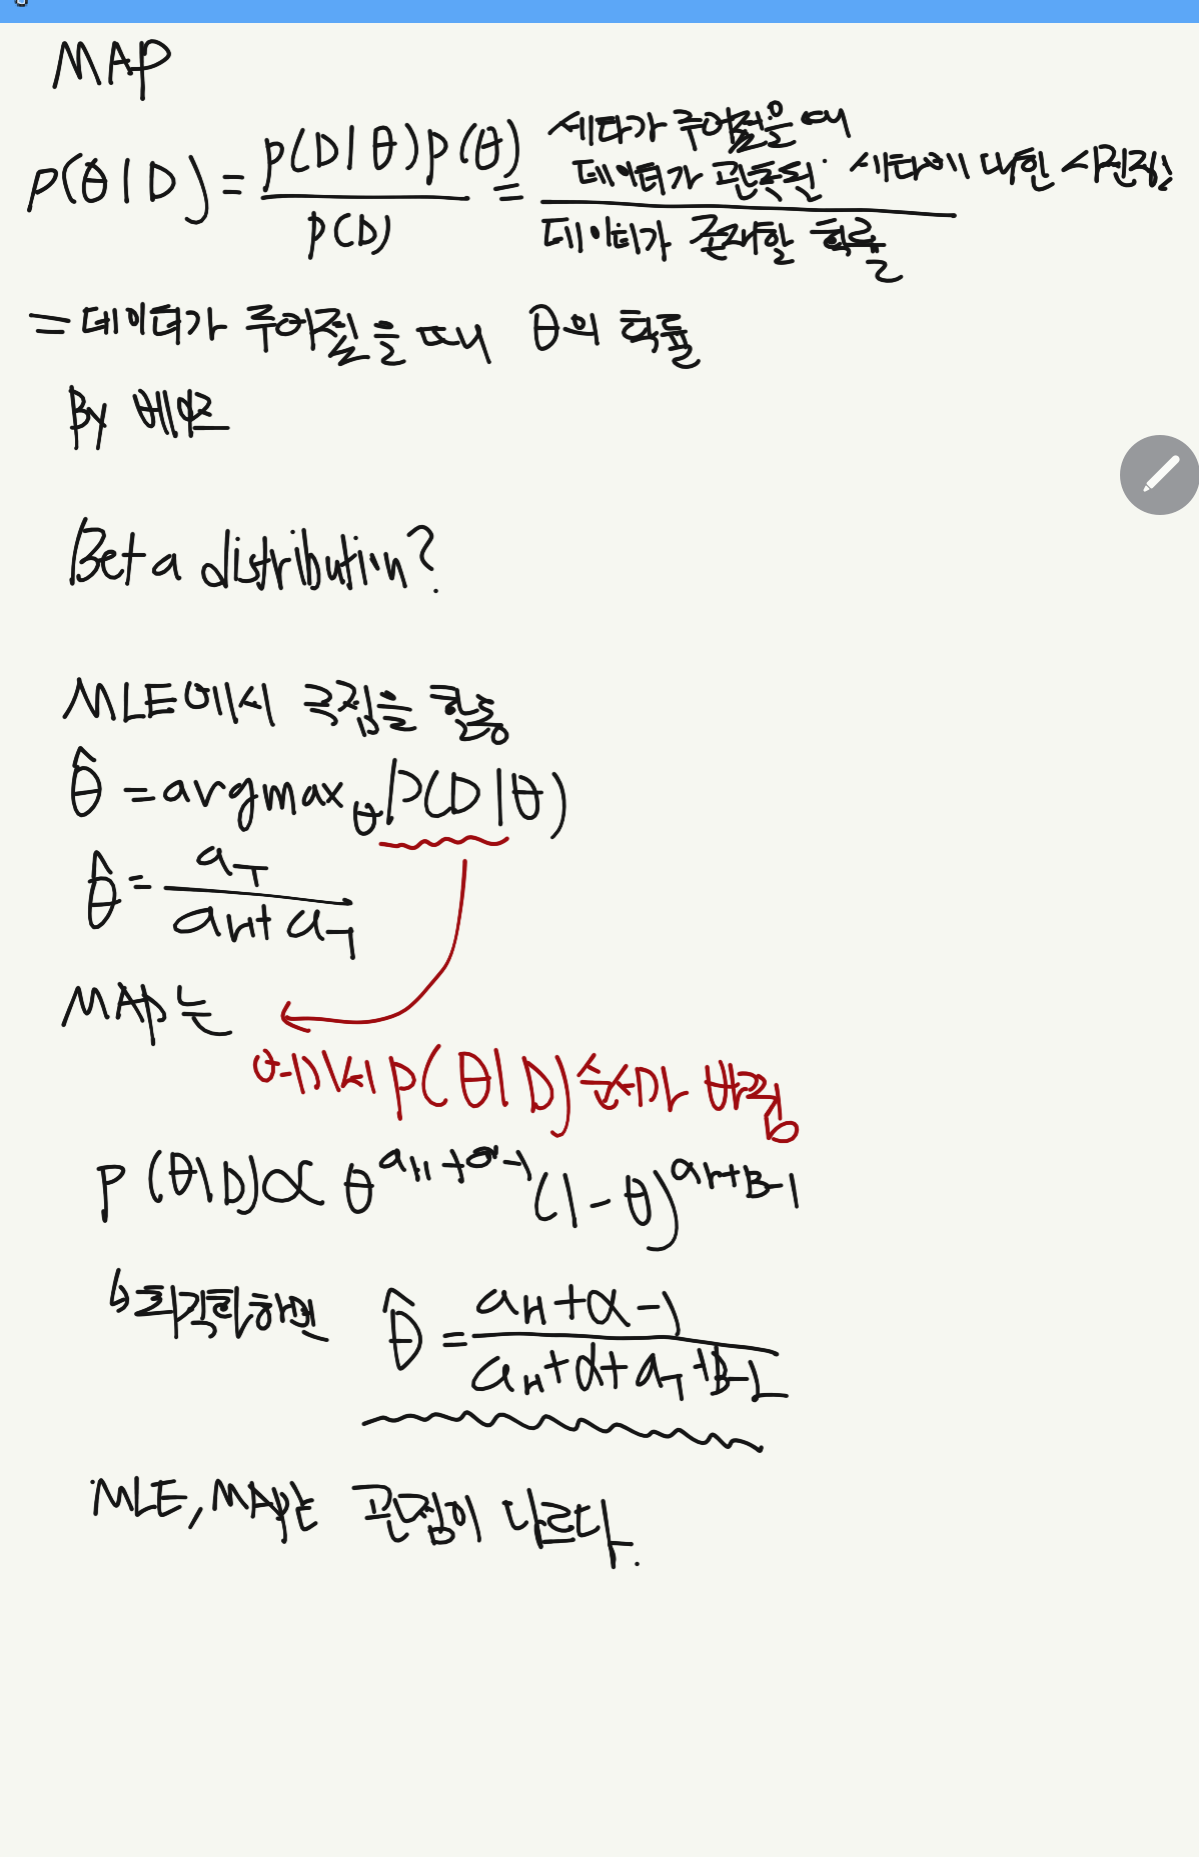 MAP
p(θ|D) = p(D|θ)p(θ) / p(D) = 세타가 주어졌을때 데이터가 관측될 · 세타에 대한 사전지식 / 데이터가 존재할 확률
= 데이터가 주어졌을 때 θ의 확률
By 베이즈
Beta distribution?
MLE에서 극점을 활용
θ̂ = argmax_θ P(D|θ)
θ̂ = a_T / a_H + a_T
MAP는
여기서 p(θ|D) 순서만 바뀜
p(θ|D) ∝ θ^(a_H+α-1) (1-θ)^(a_T+B-1)
↳ 최적화하면 θ̂ = a_H+α-1 / a_H+α+a_T+B-2
MLE, MAP는 관점이 다르다.